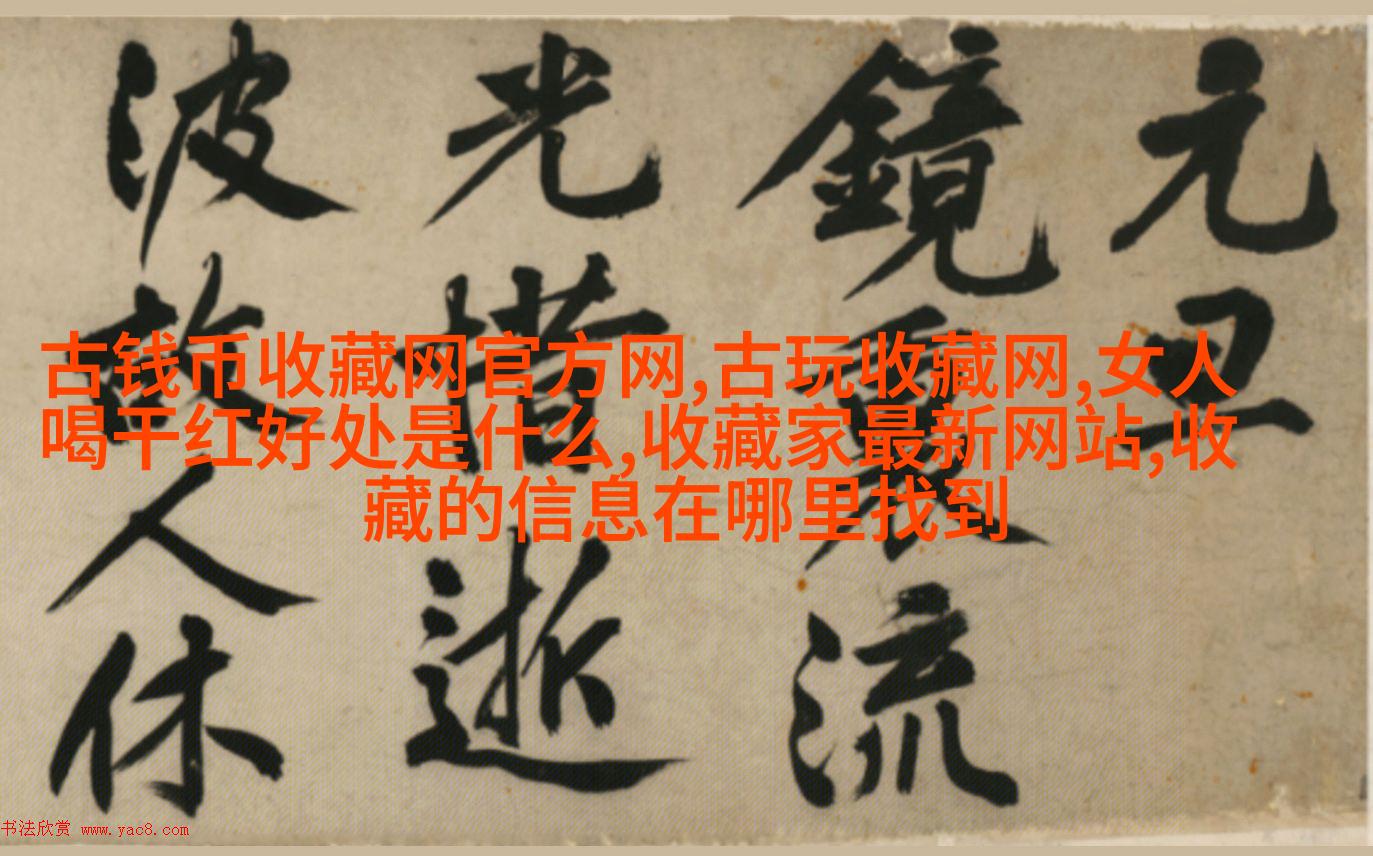 元丑
鏡裏流
光惜逝
波故人休
古钱币收藏网官方网,古玩收藏网,女人
喝干红好处是什么,收藏家最新网站,收
藏的信息在哪里找到
书法欣赏 www.yac8.com